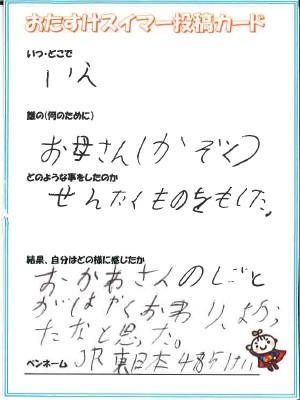 おたすけスイマー投稿カード
いつ・どこで
いえ
誰の(何のために)
お母さん(かぞく)
どのような事をしたのか
せんたくものをもした。
結果、自分はどの様に感じたか
おかあさんのしごと
がはやくお わり、よかっ
たなと思った。
ペンネーム
JR東日本485けい